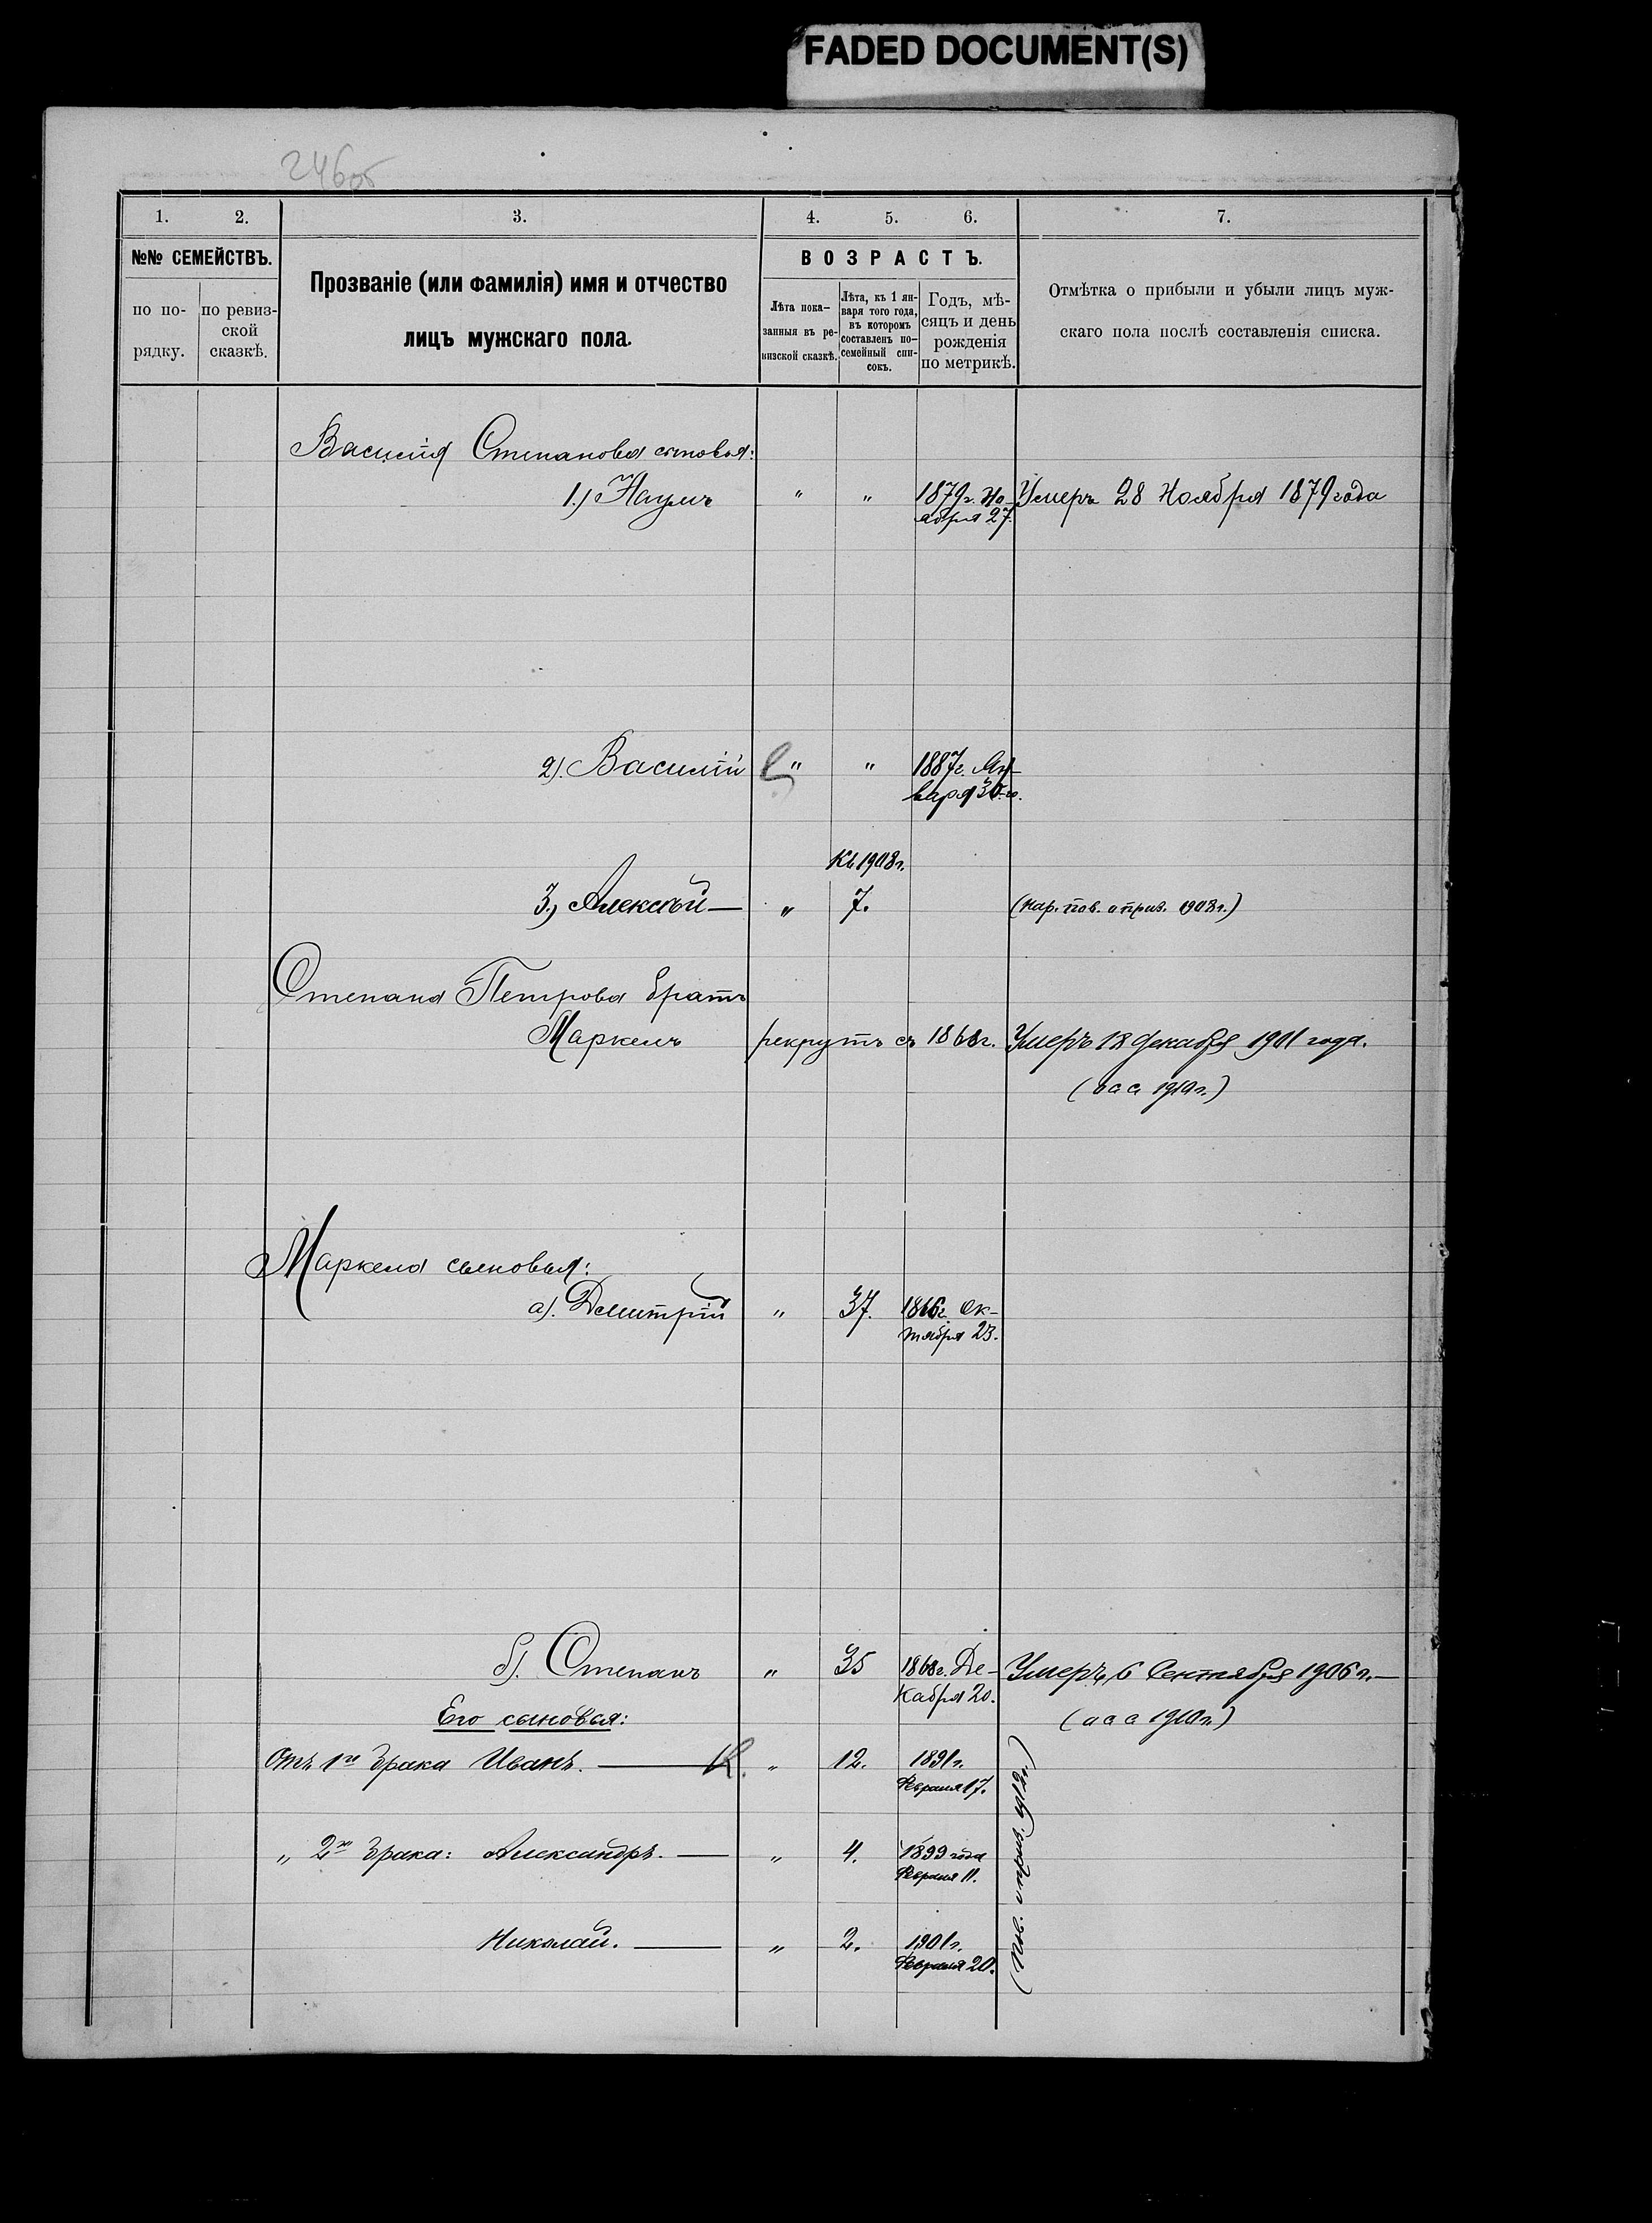 FADED DOCUMENT(S)
246об
1. 2. 3. 4. 5. 6. 7.
№№ СЕМЕЙСТВЪ.
по по-
рядку.
по ревиз-
ской
сказкѣ.
Прозваніе (или фамилія) имя и отчество
лицъ мужскаго пола.
ВОЗРАСТЪ.
Лѣта пока-
занныя въ ре-
визской сказкѣ.
Лѣта, къ 1 ян-
варя того года,
въ которомъ
составленъ по-
семейный спи-
сокъ.
Годъ, мѣ-
сяцъ и день
рожденія
по метрикѣ.
Отмѣтка о прибыли и убыли лицъ муж-
скаго пола послѣ составленія списка.
Василія Степанова сыновья:
1.) Наумъ " " 1879г. Но- Умеръ 28 Ноября 1879 года
ября 27.
2). Василій " " 1887г. Ян-
варя 30-го.
Къ 1908г.
3.) Алексѣй — " 7. (нар. пов. о приз. 1908г.)
Степана Петрова братъ
Маркелъ рекрутъ съ 1868г. Умеръ 18 декабря 1901 года.
1910г.)
Маркела сыновья:
а). Дмитрій " 37. 1866г. Ок-
тября 23.
б). Степанъ " 35 1868г. Де- Умеръ 6 Сентября 1906г. —
кабря 20.
Его сыновья:
1910г.)
Отъ 1го брака Иванъ. — К. " 12. 1891г.
Февраля 17.
„ 2го брака: Александръ. — " 4. 1899 года
Февраля 11.
Николай. — " 2. 1901г.
Февраля 20.
(Пов. о приз. 1912г.)